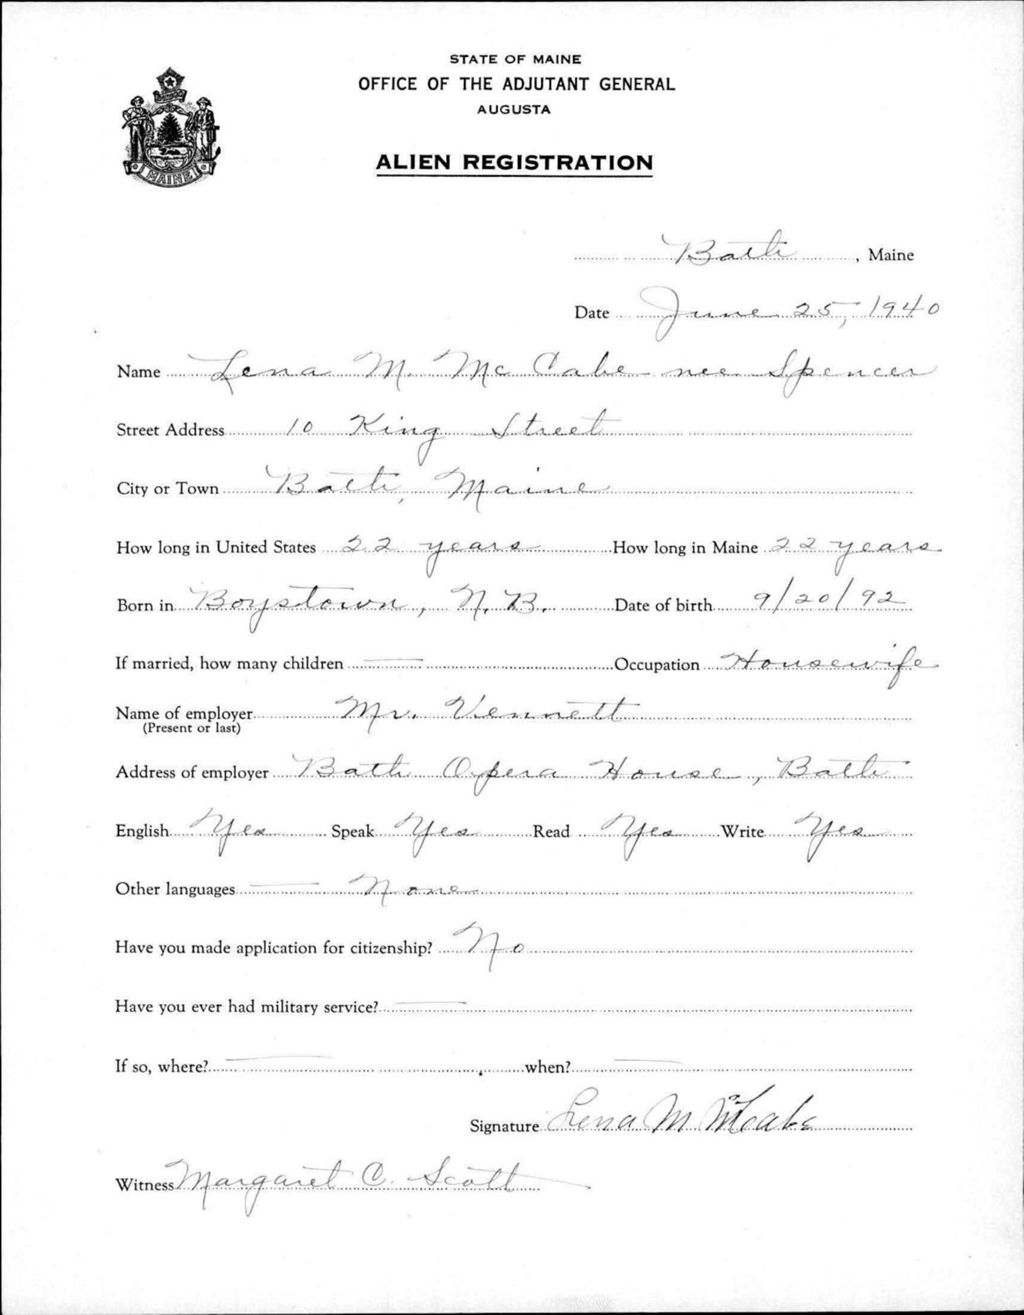 STATE OF MAINE
OFFICE OF THE ADJUTANT GENERAL
AUGUSTA
ALIEN REGISTRATION
MAINE
Bath, Maine
Date June 25, 1940
Name Lena M. McCabe nee Spencer
Street Address 10 King Street
City or Town Bath, Maine
How long in United States 22 years How long in Maine 22 years
Born in Boystown, N.B. Date of birth 9/20/92
If married, how many children — Occupation Housewife
Name of employer Mr. Vennett
(Present or last)
Address of employer Bath Opera House, Bath
English Yes Speak Yes Read Yes Write Yes
Other languages — None
Have you made application for citizenship? No
Have you ever had military service? —
If so, where? — when? —
Signature Lena M McCabe
Witness Margaret C. Scott